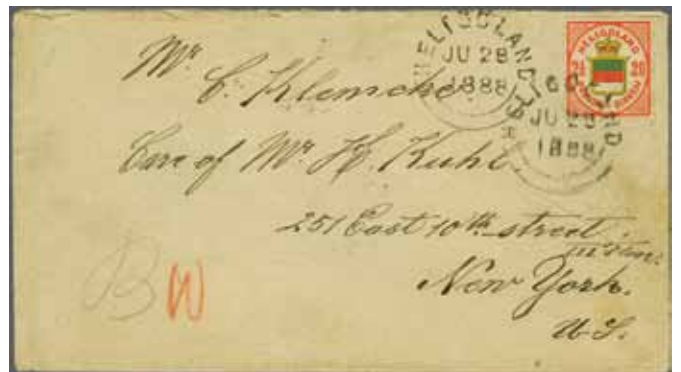 HELIGOLAND
JU 28
1888
HELIGOLAND
JU 28
1888
HELIGOLAND
2½ 20
Mr. C. Klemcke.
Care of Mr. H. Kuhl.
251 East 10th street.
III
New York.
U.S.
B W